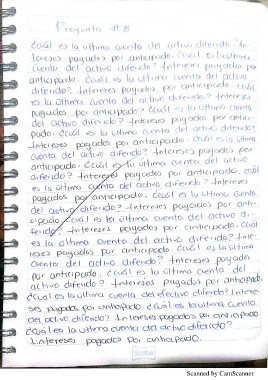 Pregunta #8
¿Cuál es la última cuenta del activo diferido? In-
tereses pagados por anticipado. ¿Cuál es la última
cuenta del activo diferido? Intereses pagados por
anticipado. ¿Cuál es la última cuenta del activo
diferido? Intereses pagados por anticipado. ¿Cuál
es la última cuenta del activo diferido? Intereses
pagados por anticipado. ¿Cuál es la última cuenta
del activo diferido? Intereses pagados por antici-
pado. ¿Cuál es la última cuenta del activo diferido?
Intereses pagados por anticipado. ¿Cuál es la última
cuenta del activo diferido? Intereses pagados por
anticipado. ¿Cuál es la última cuenta del activo
diferido? Intereses pagados por anticipado. ¿Cuál
es la última cuenta del activo diferido? Intereses
pagados por anticipado. ¿Cuál es la última cuenta
del activo diferido? Intereses pagados por anti-
cipado. ¿Cuál es la última cuenta del activo di-
ferido? Intereses pagados por anticipado. ¿Cuál
es la última cuenta del activo diferido? Inte-
reses pagados por anticipado. ¿Cuál es la última
cuenta del activo diferido? Intereses pagados
por anticipado. ¿Cuál es la última cuenta del
activo diferido? Intereses pagados por anticipado.
¿Cual es la última cuenta del efectivo diferido? Intere-
ses pagados por anticipado. ¿Cuál es la última cuenta
del activo diferido? Intereses pagados por anticipado.
¿Cuál es la última cuenta del activo diferido?
Intereses pagados por anticipado.
Scanned by CamScanner